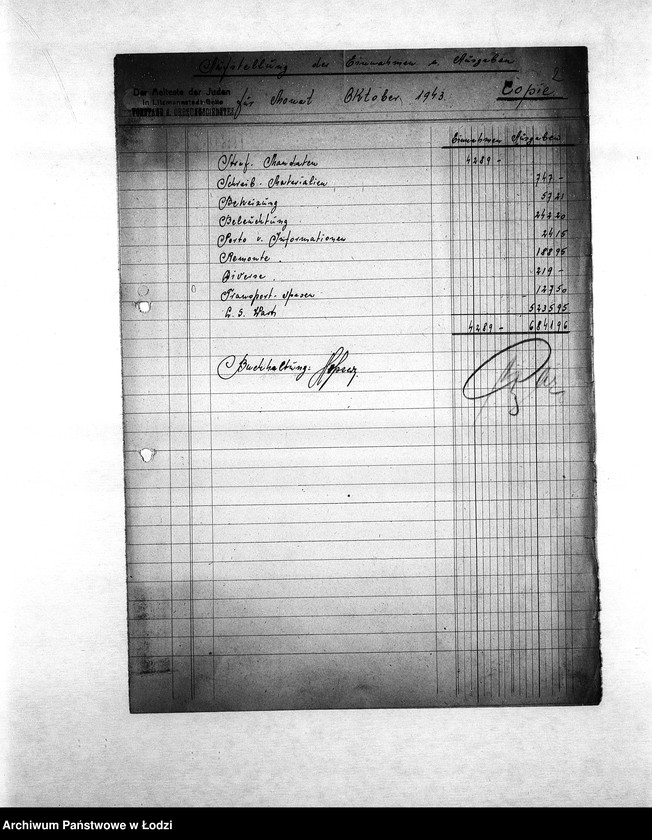 Aufstellung der Einnahmen u. Ausgaben
2
Der Aelteste der Juden
in Litzmannstadt-Getto
für Monat Oktober 1943.
Copie
Einnahmen Ausgaben
Straf. Mandaten 4289 -
Schreib. Materialien 747 -
Beheizung 57 21
Beleuchtung 242 20
Porto u. Informationen 24 15
Remonte. 188 95
Diverse. 219 -
Transport-spesen 127 50
5235 95
4289 - 6841 96
Buchhaltung:
Archiwum Państwowe w Łodzi